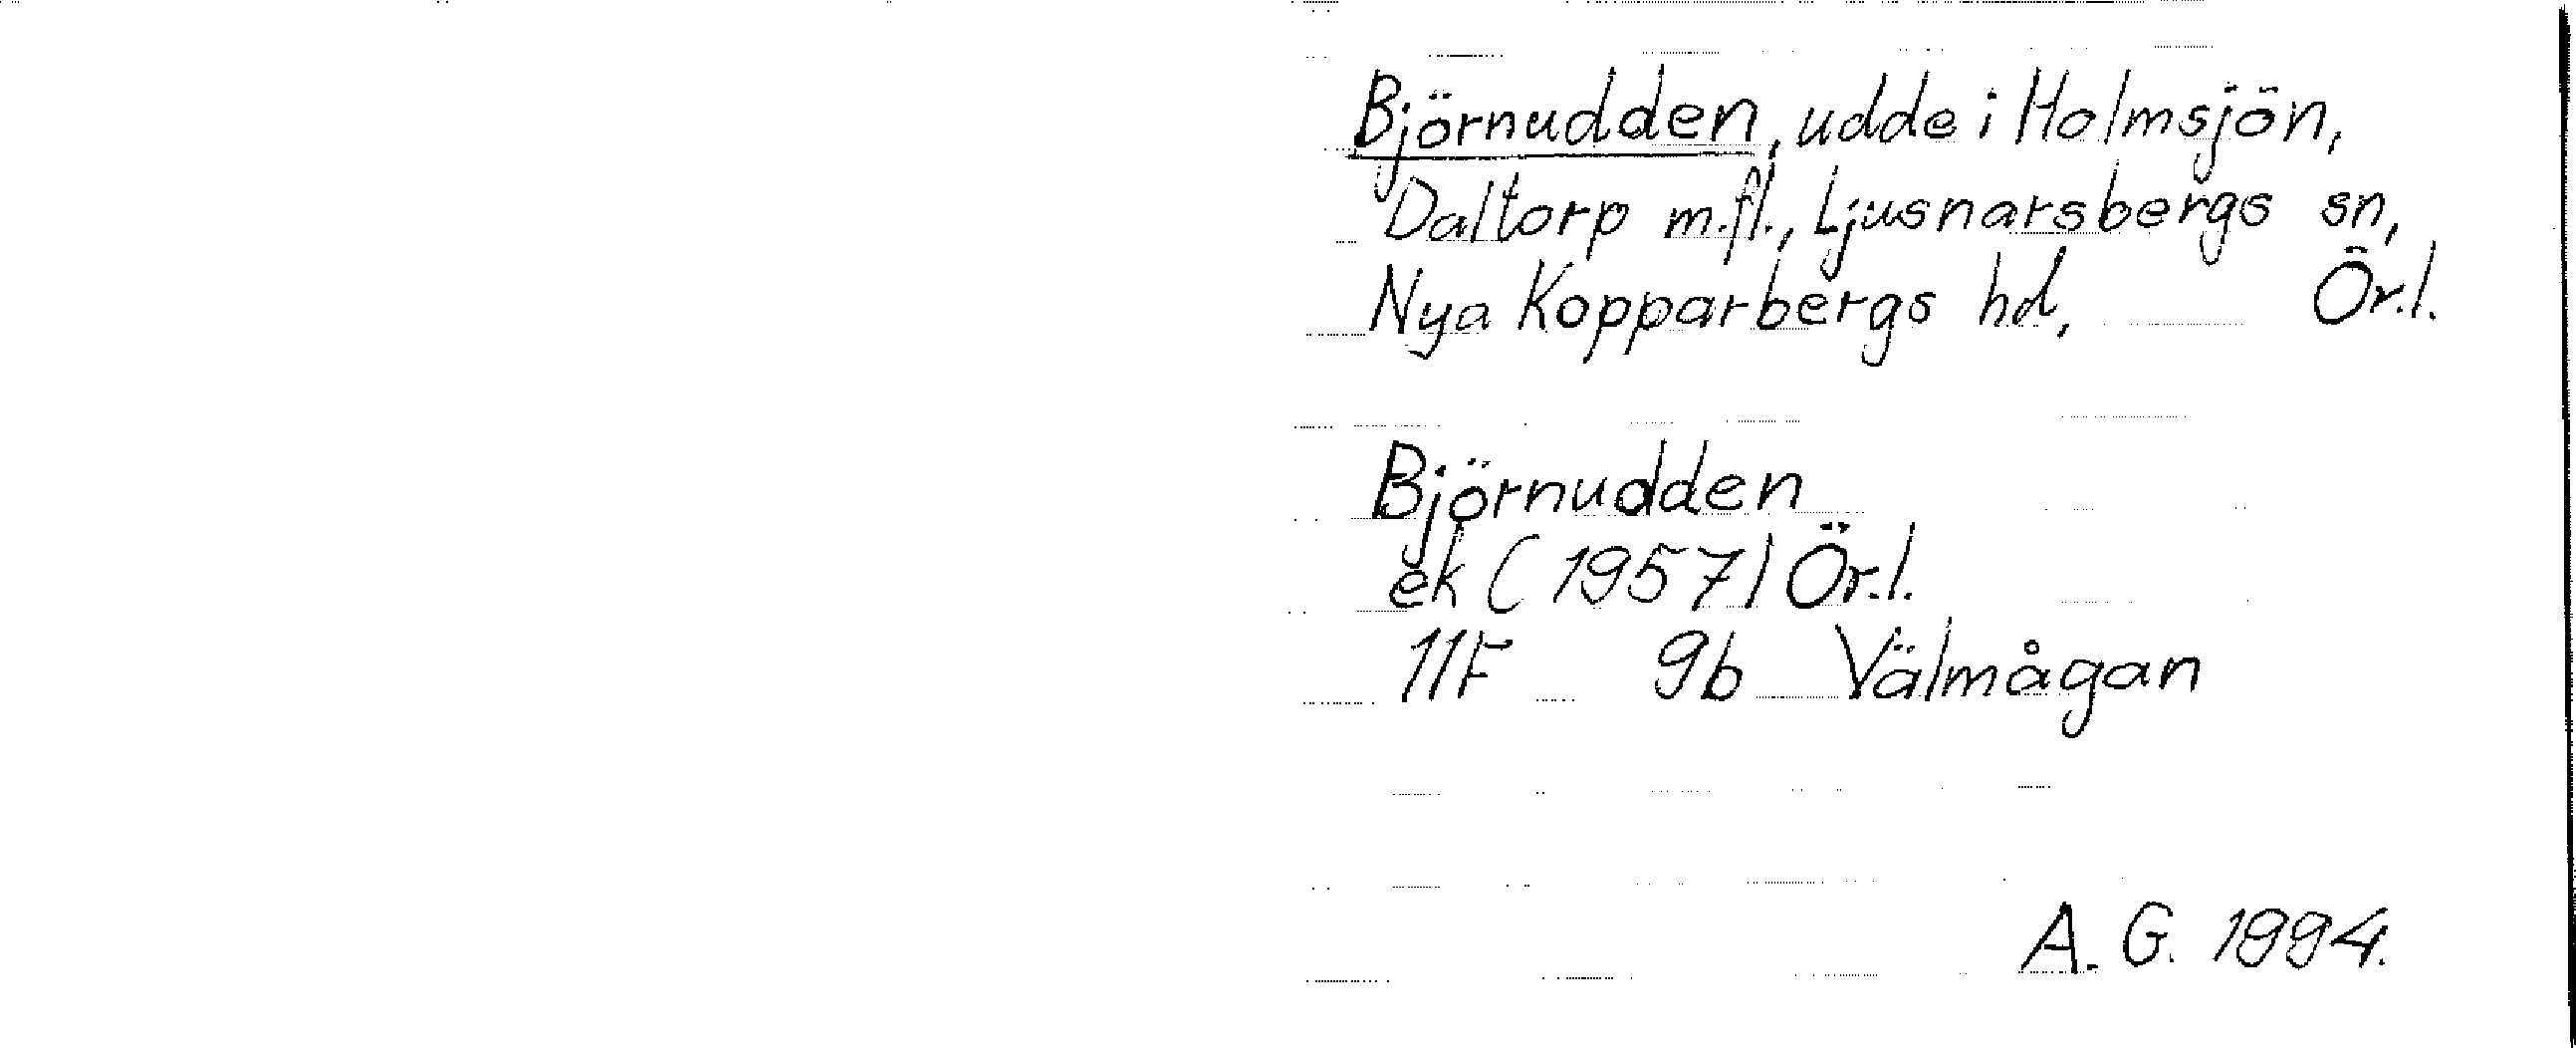 Björnudden, udde i Holmsjön,
Daltorp m.fl., Ljusnarsbergs sn,
Nya Kopparbergs hd, Ör.l.
Björnudden
ek (1957) Ör.l.
11F 9b Välmågan
A. G. 1994.